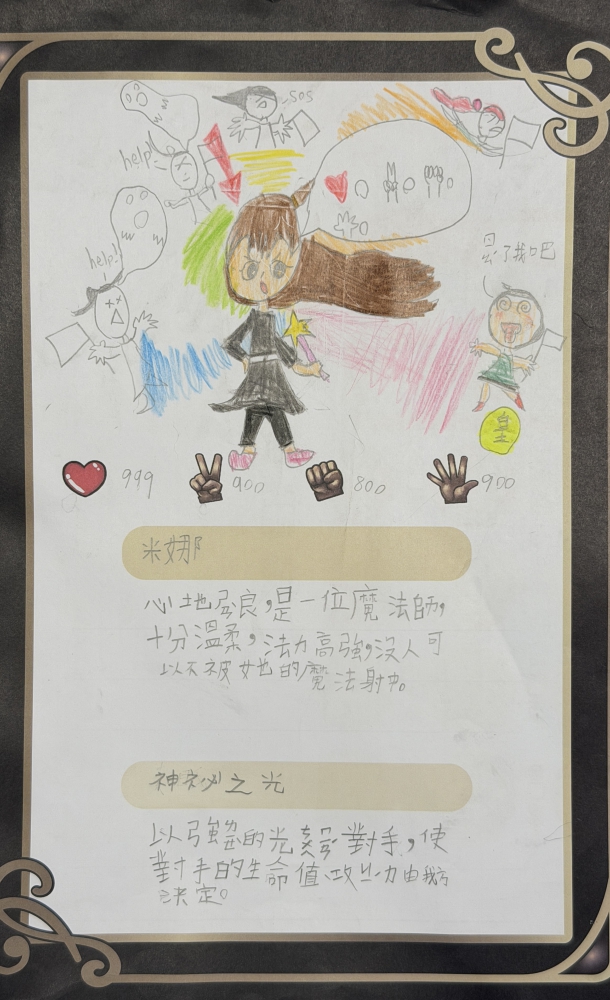 SOS
help!
help!
0
0
0
0
饒了我吧
皇上
999
900
800
900
米娜
心地善良,是一位魔法師,
十分溫柔,法力高強,沒人可
以不被她的魔法射中。
神祕之光
以強勁的光芒對手,使
對手的生命值、攻擊力由我方
決定。